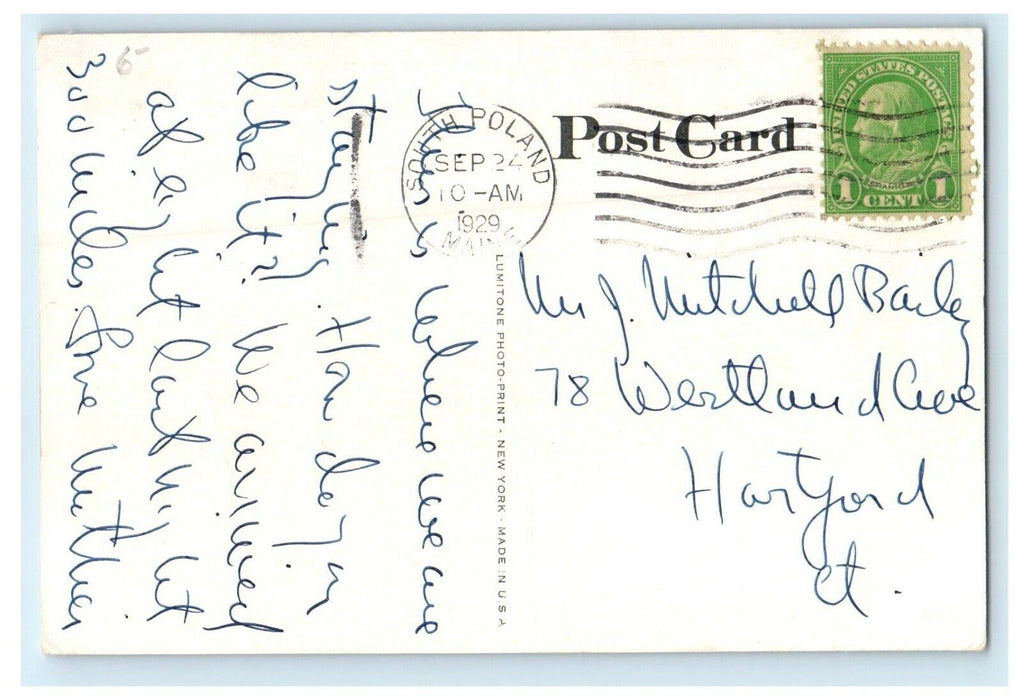 This is where we are
staying. How do you
like it? We arrived
at eight last night
300 miles. Love Mother
5
SOUTH POLAND
SEP 24
10-AM
1929
MAINE
Post Card
UNITED STATES POSTAGE
1 CENT 1
LUMITONE PHOTO-PRINT - NEW YORK - MADE IN U.S.A
Mr J. Mitchell Bailey
78 Westland Ave
Hartford
Ct.